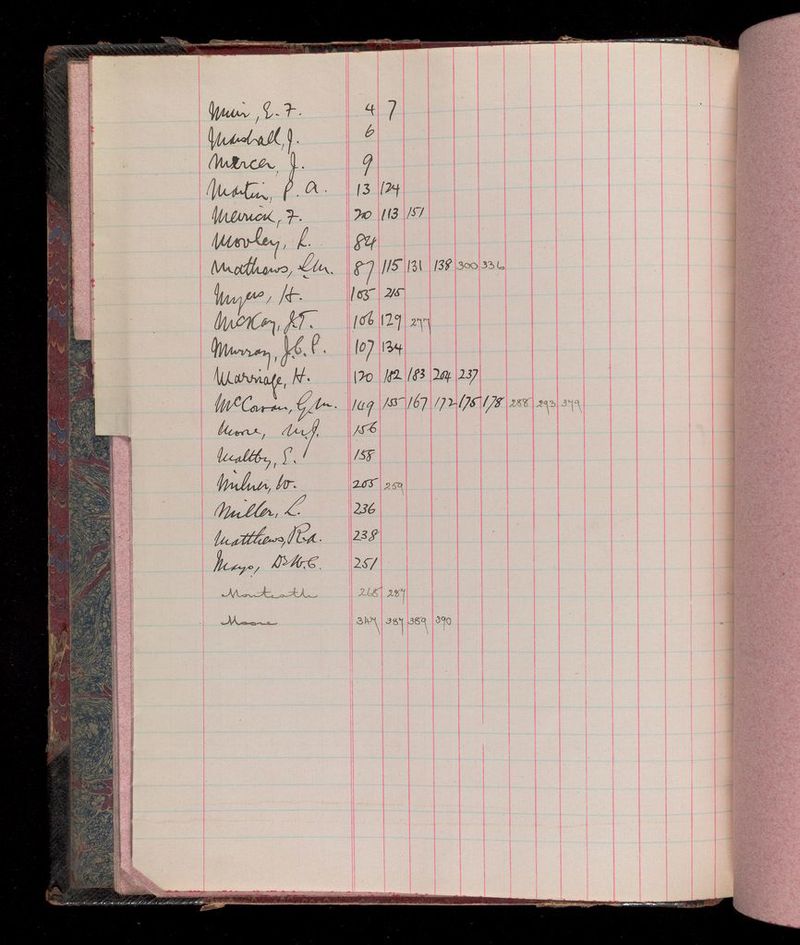 Muir, E. F. 4 7
Marshall, J. 6
Mercer, J. 9
Martin, P. A. 13 124
Merrick, F. 20 113 151
Morley, L. 84
Mathews, 87 115 131 138 300 336
Myers, H. 105 215
McKay, J.T. 106 129 277
Murray, J.C.P. 107 134
Marriage, H. 120 182 183 204 237
McCowan, G.M. 149 155 167 172 175 178 288 293 379
Moore, M.J. 156
Maltby, E. 158
Milner, W. 205 259
Miller, L. 236
Matthews, R.A. 238
Mayo, Dr W.C. 251
Monteath 268 287
Moore 347 387 389 390